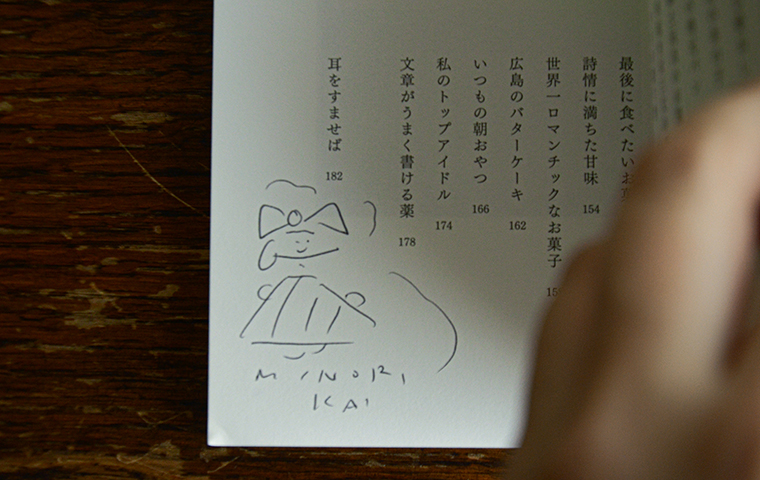 最後に食べたいお菓
詩情に満ちた甘味 154
世界一ロマンチックなお菓子 15
広島のバターケーキ 162
いつもの朝おやつ 166
私のトップアイドル 174
文章がうまく書ける薬 178
耳をすませば 182
MINORI
KAI